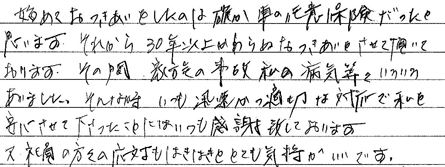 始めておつきあいをしたのは確か車の任意保険だったと
思います。それから30年以上かわらぬおつきあいをさせて頂いて
おります。その間、数々の事故 私の病気等といろいろ
ありました。そんな時 いつも迅速かつ適切な対応で私を
安心させて下さったことにはいつも感謝致しております
又、社員の方々の応対もはきはきとても気持がいいです。